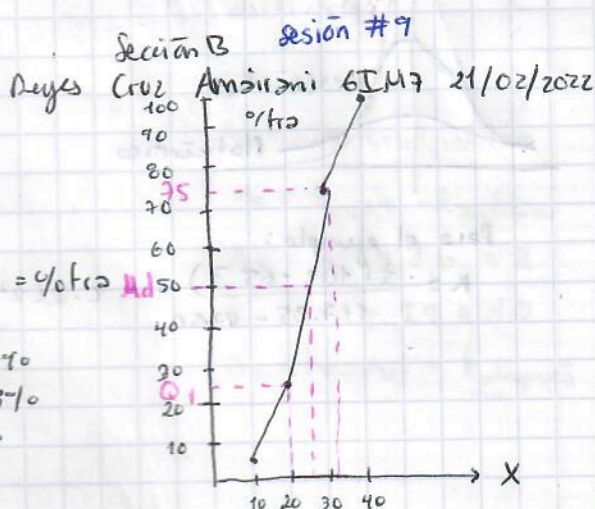 Sección B sesión #9
Reyes Cruz Amairani 6IM7 21/02/2022
100
%fra
90
80
75
70
60
= %fra Md 50
40
30
Q1
20
10
X
10 20 30 40